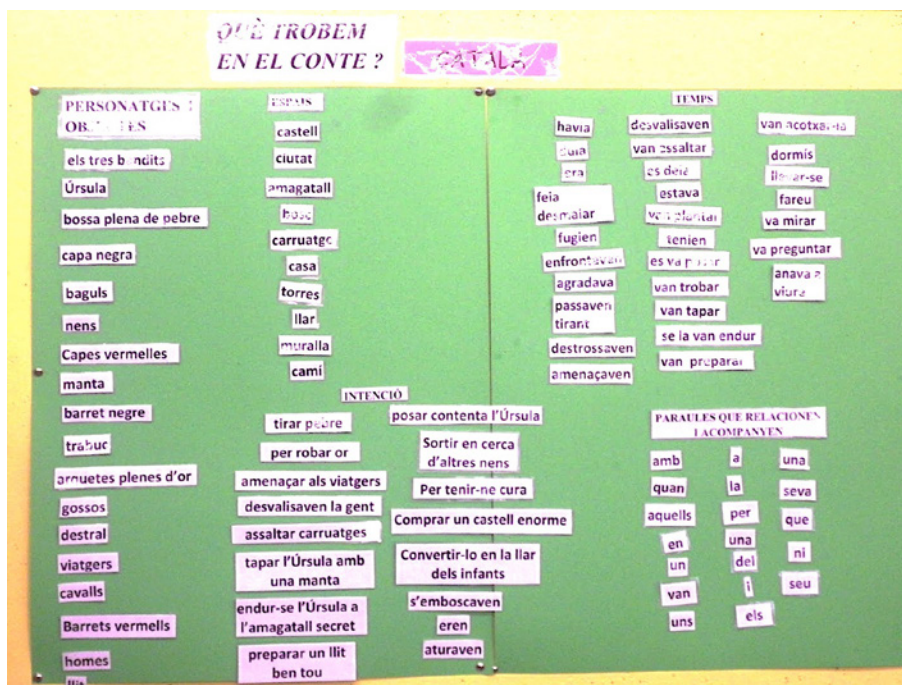 QUÈ TROBEM
EN EL CONTE ?
CATALÀ
PERSONATGES I
els tres bandits
Úrsula
bossa plena de pebre
capa negra
baguls
nens
Capes vermelles
manta
barret negre
trabuc
arquetes plenes d'or
gossos
destral
viatgers
cavalls
Barrets vermells
homes
llit
ESPAIS
castell
ciutat
amagatall
bosc
carruatge
casa
torres
llar
muralla
camí
INTENCIÒ
tirar pebre
per robar or
amenaçar als viatgers
desvalisaven la gent
assaltar carruatges
tapar l'Úrsula amb
una manta
endur-se l'Úrsula a
l'amagatall secret
preparar un llit
ben tou
posar contenta l'Úrsula
Sortir en cerca
d'altres nens
Per tenir-ne cura
Comprar un castell enorme
Convertir-lo en la llar
dels infants
s'emboscaven
eren
aturaven
TEMPS
havia
duia
era
feia
desmaiar
fugien
enfrontaven
agradava
passaven
tirant
destrossaven
amenaçaven
desvalisaven
van assaltar
es deia
estava
van plantar
tenien
es va
van trobar
van tapar
se la van endur
van preparar
van acotxar-la
dormís
llevar-se
fareu
va mirar
va preguntar
anava a
viure
PARAULES QUE RELACIONEN
I ACOMPANYEN
amb
quan
aquells
en
un
van
uns
a
la
per
una
del
i
els
una
seva
que
ni
seu